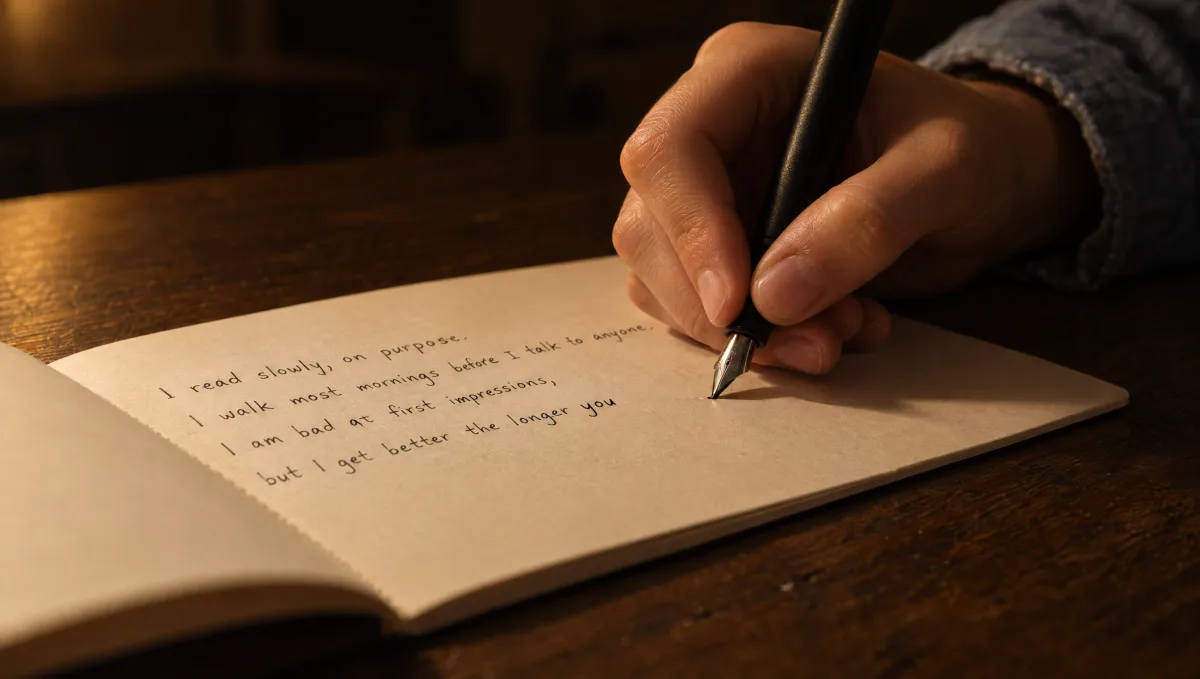 I read slowly, on purpose.
I walk most mornings before I talk to anyone.
I am bad at first impressions,
but I get better the longer you